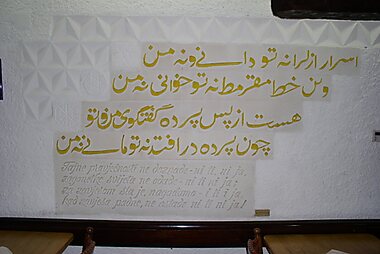 اسرار ازل را نه تو دانی و نه من
وین خط مقرمط نه تو خوانی نه من
هست از پس پرده گفتگوی من و تو
چون پرده در افتد نه تو مانی نه من
Tajne ne doznade - ni ti, ni ja,
zagonetke svijeta ne - ni ti ni ja;
za zavjesom šta je, nagađamo - i ti i ja,
kad zavjesa padne, ne ostade ni ti ni ja!